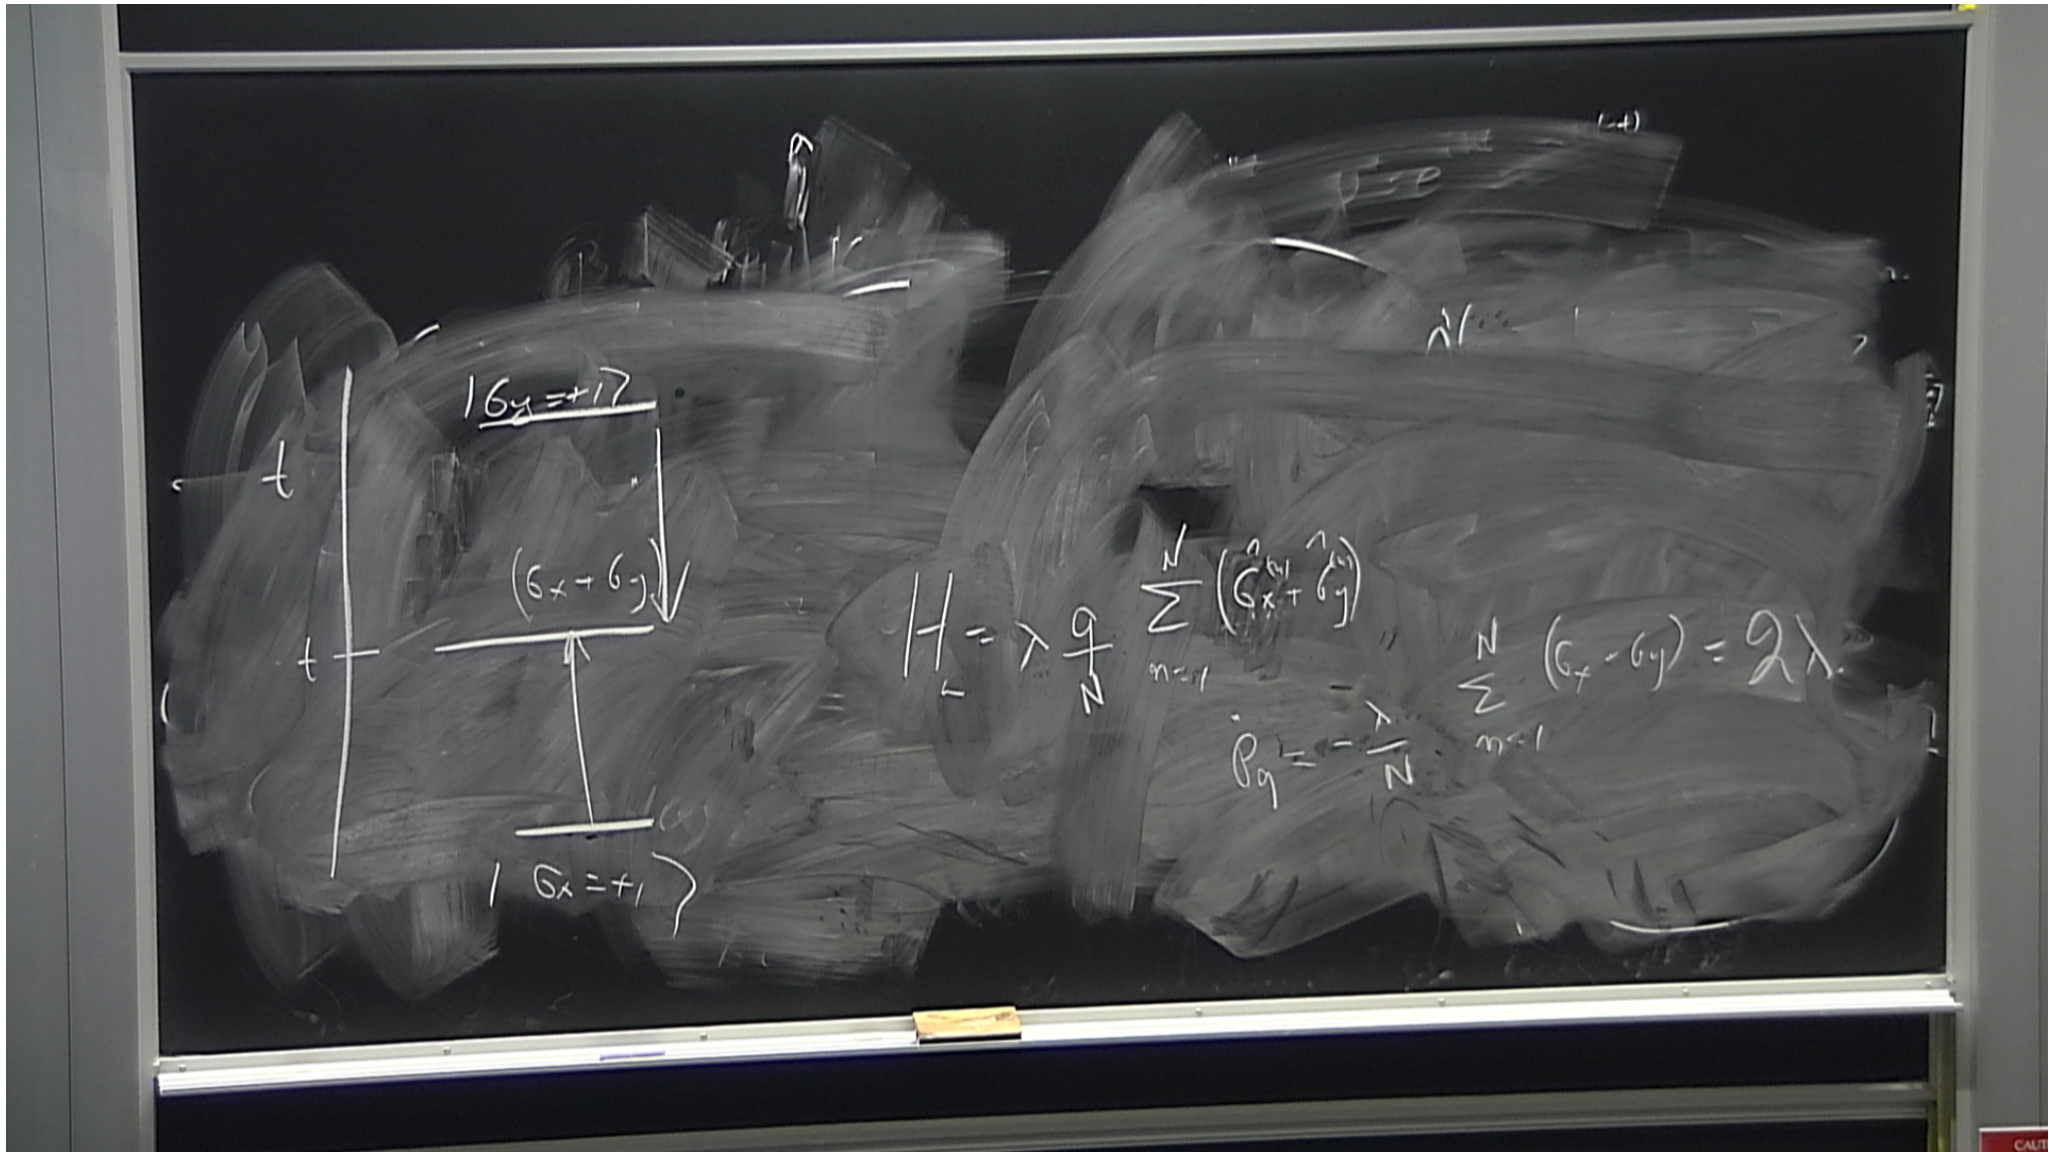 |σy=+1⟩
t
(σx+σy)
t
|σx=+1⟩
H = λ q/N ∑_{n=1}^{N} (σ̂x^{(n)} + σ̂y^{(n)})
Ṗq = -λ/N ∑_{n=1}^{N} (σx - σy) = 2λ.
CAUT